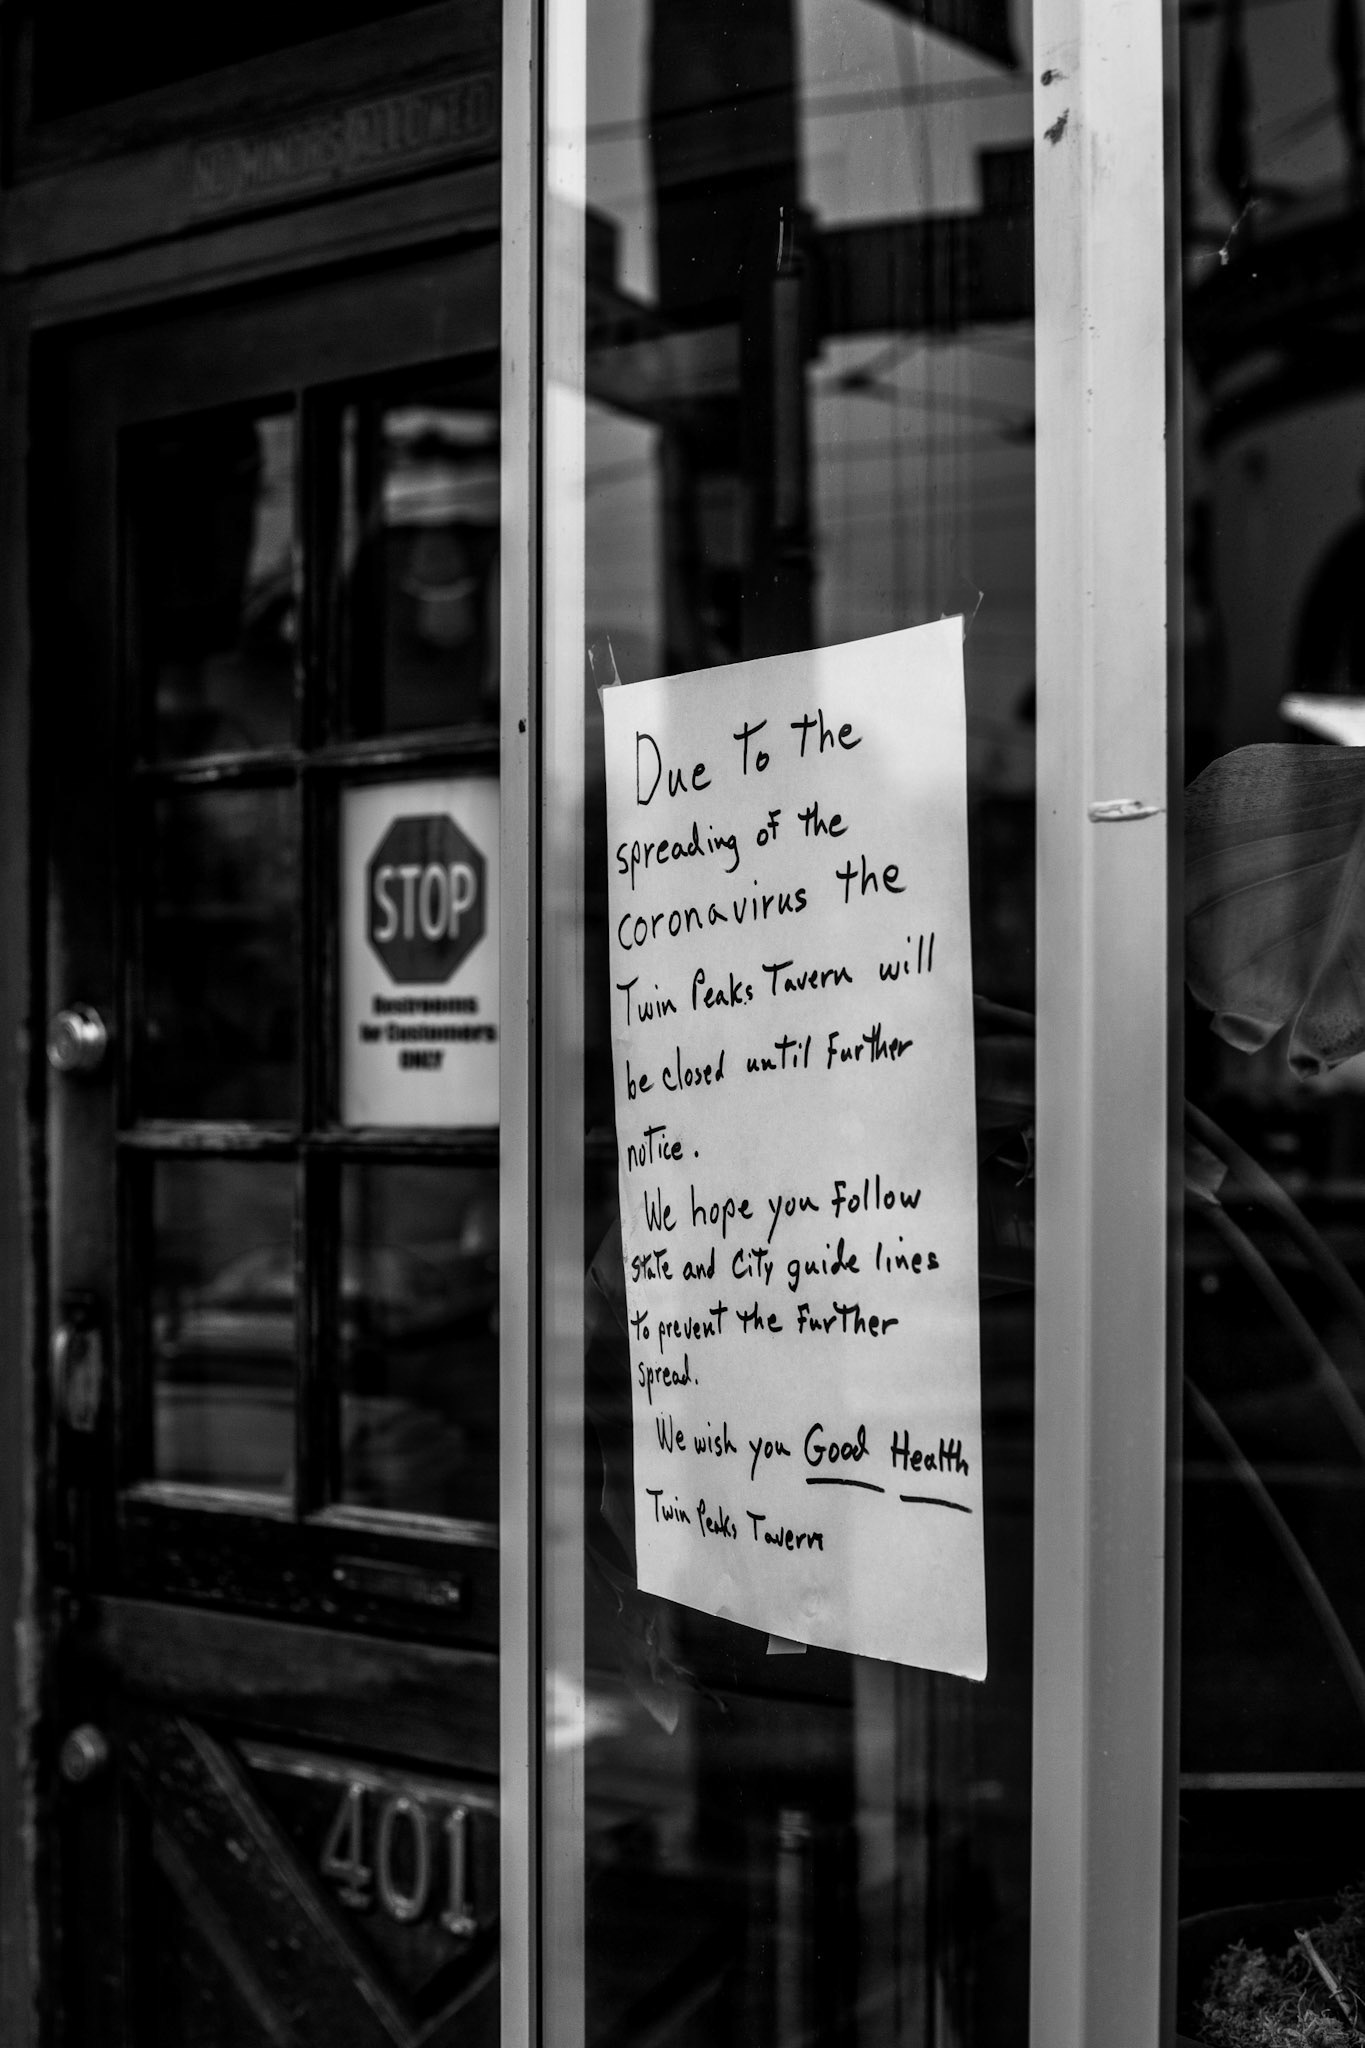 NO MINORS ALLOWED
STOP
Restrooms
for Customers
ONLY
401
Due To the
spreading of the
coronavirus the
Twin Peaks Tavern will
be closed until Further
notice.
We hope you Follow
state and City guide lines
to prevent the Further
spread.
We wish you Good Health
Twin Peaks Tavern